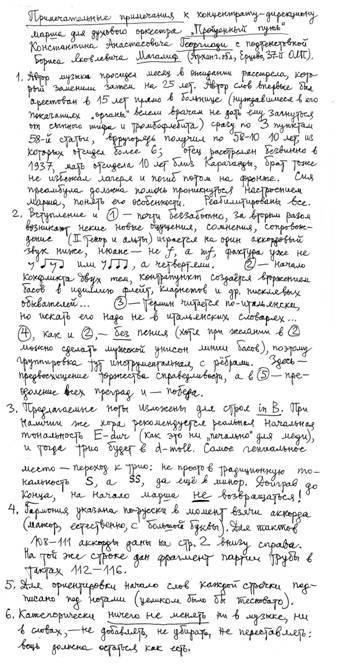 Примечательные примечания к концентрату-дирекциону
марша для духового оркестра "Пройденный путь"
Константина Анастасовича Георгиади с подтекстовкой
Бориса Яковлевича Магалиф (Арханг. обл., Ерцево, 37-й ОЛП).
1. Автор музыки просидел месяц в ожидании расстрела, кото-
рый заменили затем на 25 лет. Автор слов впервые был
арестован в 15 лет прямо в больнице (нуждавшиеся в его
показаниях "органы" велели врачам не дать ему загнуться
от сыпного тифа и тромбофлебита) сразу по 3 пунктам
58-й статьи, "врупоряде получил по 58-10 10 лет из
которых отсидел более 6; отец расстрелян безвинно в
1937, мать отсидела 10 лет близ Караганды, брат тоже
не избежал лагеря и погиб потом на фронте. Сия
преамбула должна помочь проникнуться настроением
марша, понять его особенности. Реабилитированы все.
2. Вступление и ① — почти беззаботно, за вторым разом
возникают некие новые ощущения, сомнения, сопровож-
дение (II тенор и альты) играется на один аккордовый
звук ниже, нюанс — не f, а mf, фактура уже не
или, а четвертями. ② — начало
конфликта двух тем, контрапункт создаётся вторжением
басов в идиллию флейт, кларнетов и др. писклявых
обывателей... ③ — термин читается по-итальянски,
но искать его надо не в итальянских словарях...
④, как и ②, — без пения (хотя при желании в ②
можно сделать мужской унисон линии басов), поэтому
группировка тут инструментальная, с рёбрами. Здесь —
предвосхищение торжества справедливости, а в ⑤ — прео-
доление всех преград и — победа.
3. Предлагаемые ноты изложены для строя in B. При
наличии же хора рекомендуется реальная начальная
тональность E-dur (как это ни "печально" для меди),
и тогда трио будет в d-moll. Самое гениальное
место — переход к трио: не просто в традиционную то-
нальность S, а SS, да ещё в минор. Доиграв до
конца, на начало марша не возвращаться!
4. Гармония указана по-русски в момент взятия аккорда
(мажор, естественно, с большой буквы). Для тактов
108-111 аккорды даны на стр. 2 внизу справа.
На той же строке дан фрагмент партии трубы в
тактах 112-116.
5. Для ориентировки начало слов каждой строчки под-
писано под нотами (целиком было бы тесновато).
6. Категорически ничего не менять ни в музыке, ни
в словах, — не добавлять, не убирать, не переставлять:
вещь должна остаться как есть.